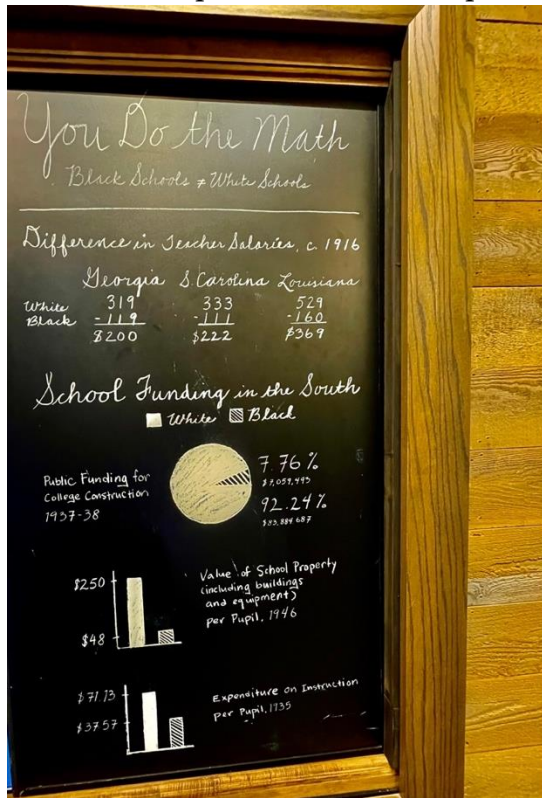 You Do the Math
Black Schools ≠ White Schools
Difference in Teacher Salaries, c. 1916
Georgia S. Carolina Louisiana
White 319 333 529
Black -119 -111 -160
$200 $222 $369
School Funding in the South
White Black
Public Funding for
College Construction
1937-38
7.76%
$7,059,493
92.24%
$83,884,687
Value of School Property
(including buildings
and equipment)
per Pupil, 1946
$250
$48
Expenditure on Instruction
per Pupil, 1935
$71.13
$37.57